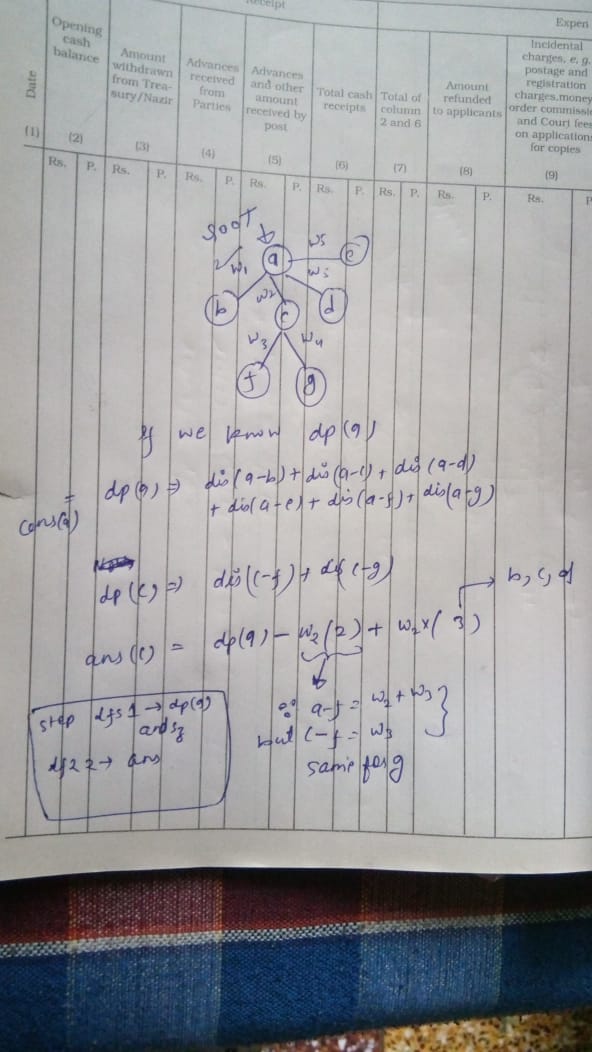 Receipt
Expen
Date
Opening cash balance
Amount withdrawn from Trea-sury/Nazir
Advances received from Parties
Advances and other amount received by post
Total cash receipts
Total of column 2 and 6
Amount refunded to applicants
Incidental charges, e, g. postage and registration charges,money order commissi and Court fees on applications for copies
(1) (2) (3) (4) (5) (6) (7) (8) (9)
Rs. P. Rs. P. Rs. P. Rs. P. Rs. P. Rs. P. Rs. P. Rs. P
root
a w5 e
w1 w2
b c d
w3 w4
f g
If we know dp(a)
= dp(a) ⇒ dis(a-b) + dis(a-c) + dis(a-d)
+ dis(a-e) + dis(a-f) + dis(a-g)
ans(a)
dp(c) ⇒ dis(c-f) + dis(c-g)
ans(c) = dp(a) - w2(2) + w2×( 3 )
a-f = w2 + w3
but c-f = w3
same for g
step dfs 1 → dp(a)
and sz
dfs 2 → ans